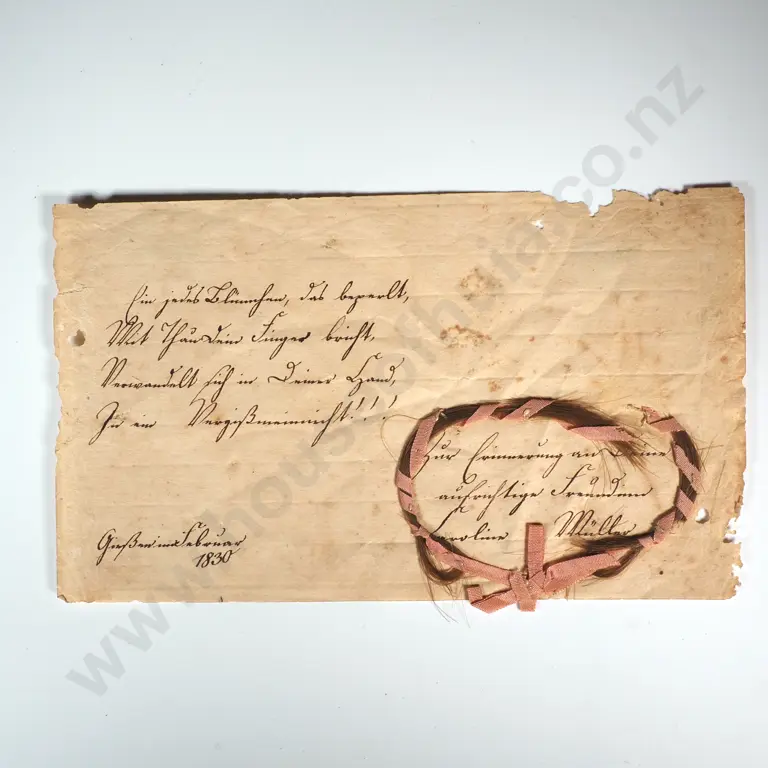 Ein jedes Blümchen, das beperlt,
Mit Thau Dein Finger bricht,
Verwandelt sich in Deiner Hand,
In ein Vergißmeinnicht!!!
Zur Erinnerung an Deine
aufrichtige Freundinn
Caroline Müller
Gießen im Februar
1830
www.houseofhuia.co.nz